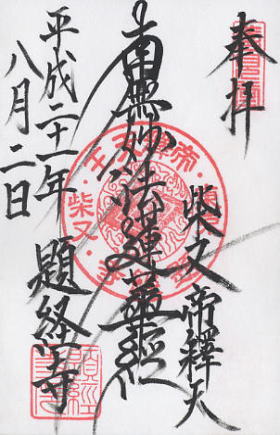 奉拝
柴又 帝釋天
南無妙法蓮華経
平成二十一年
八月二日
題経寺